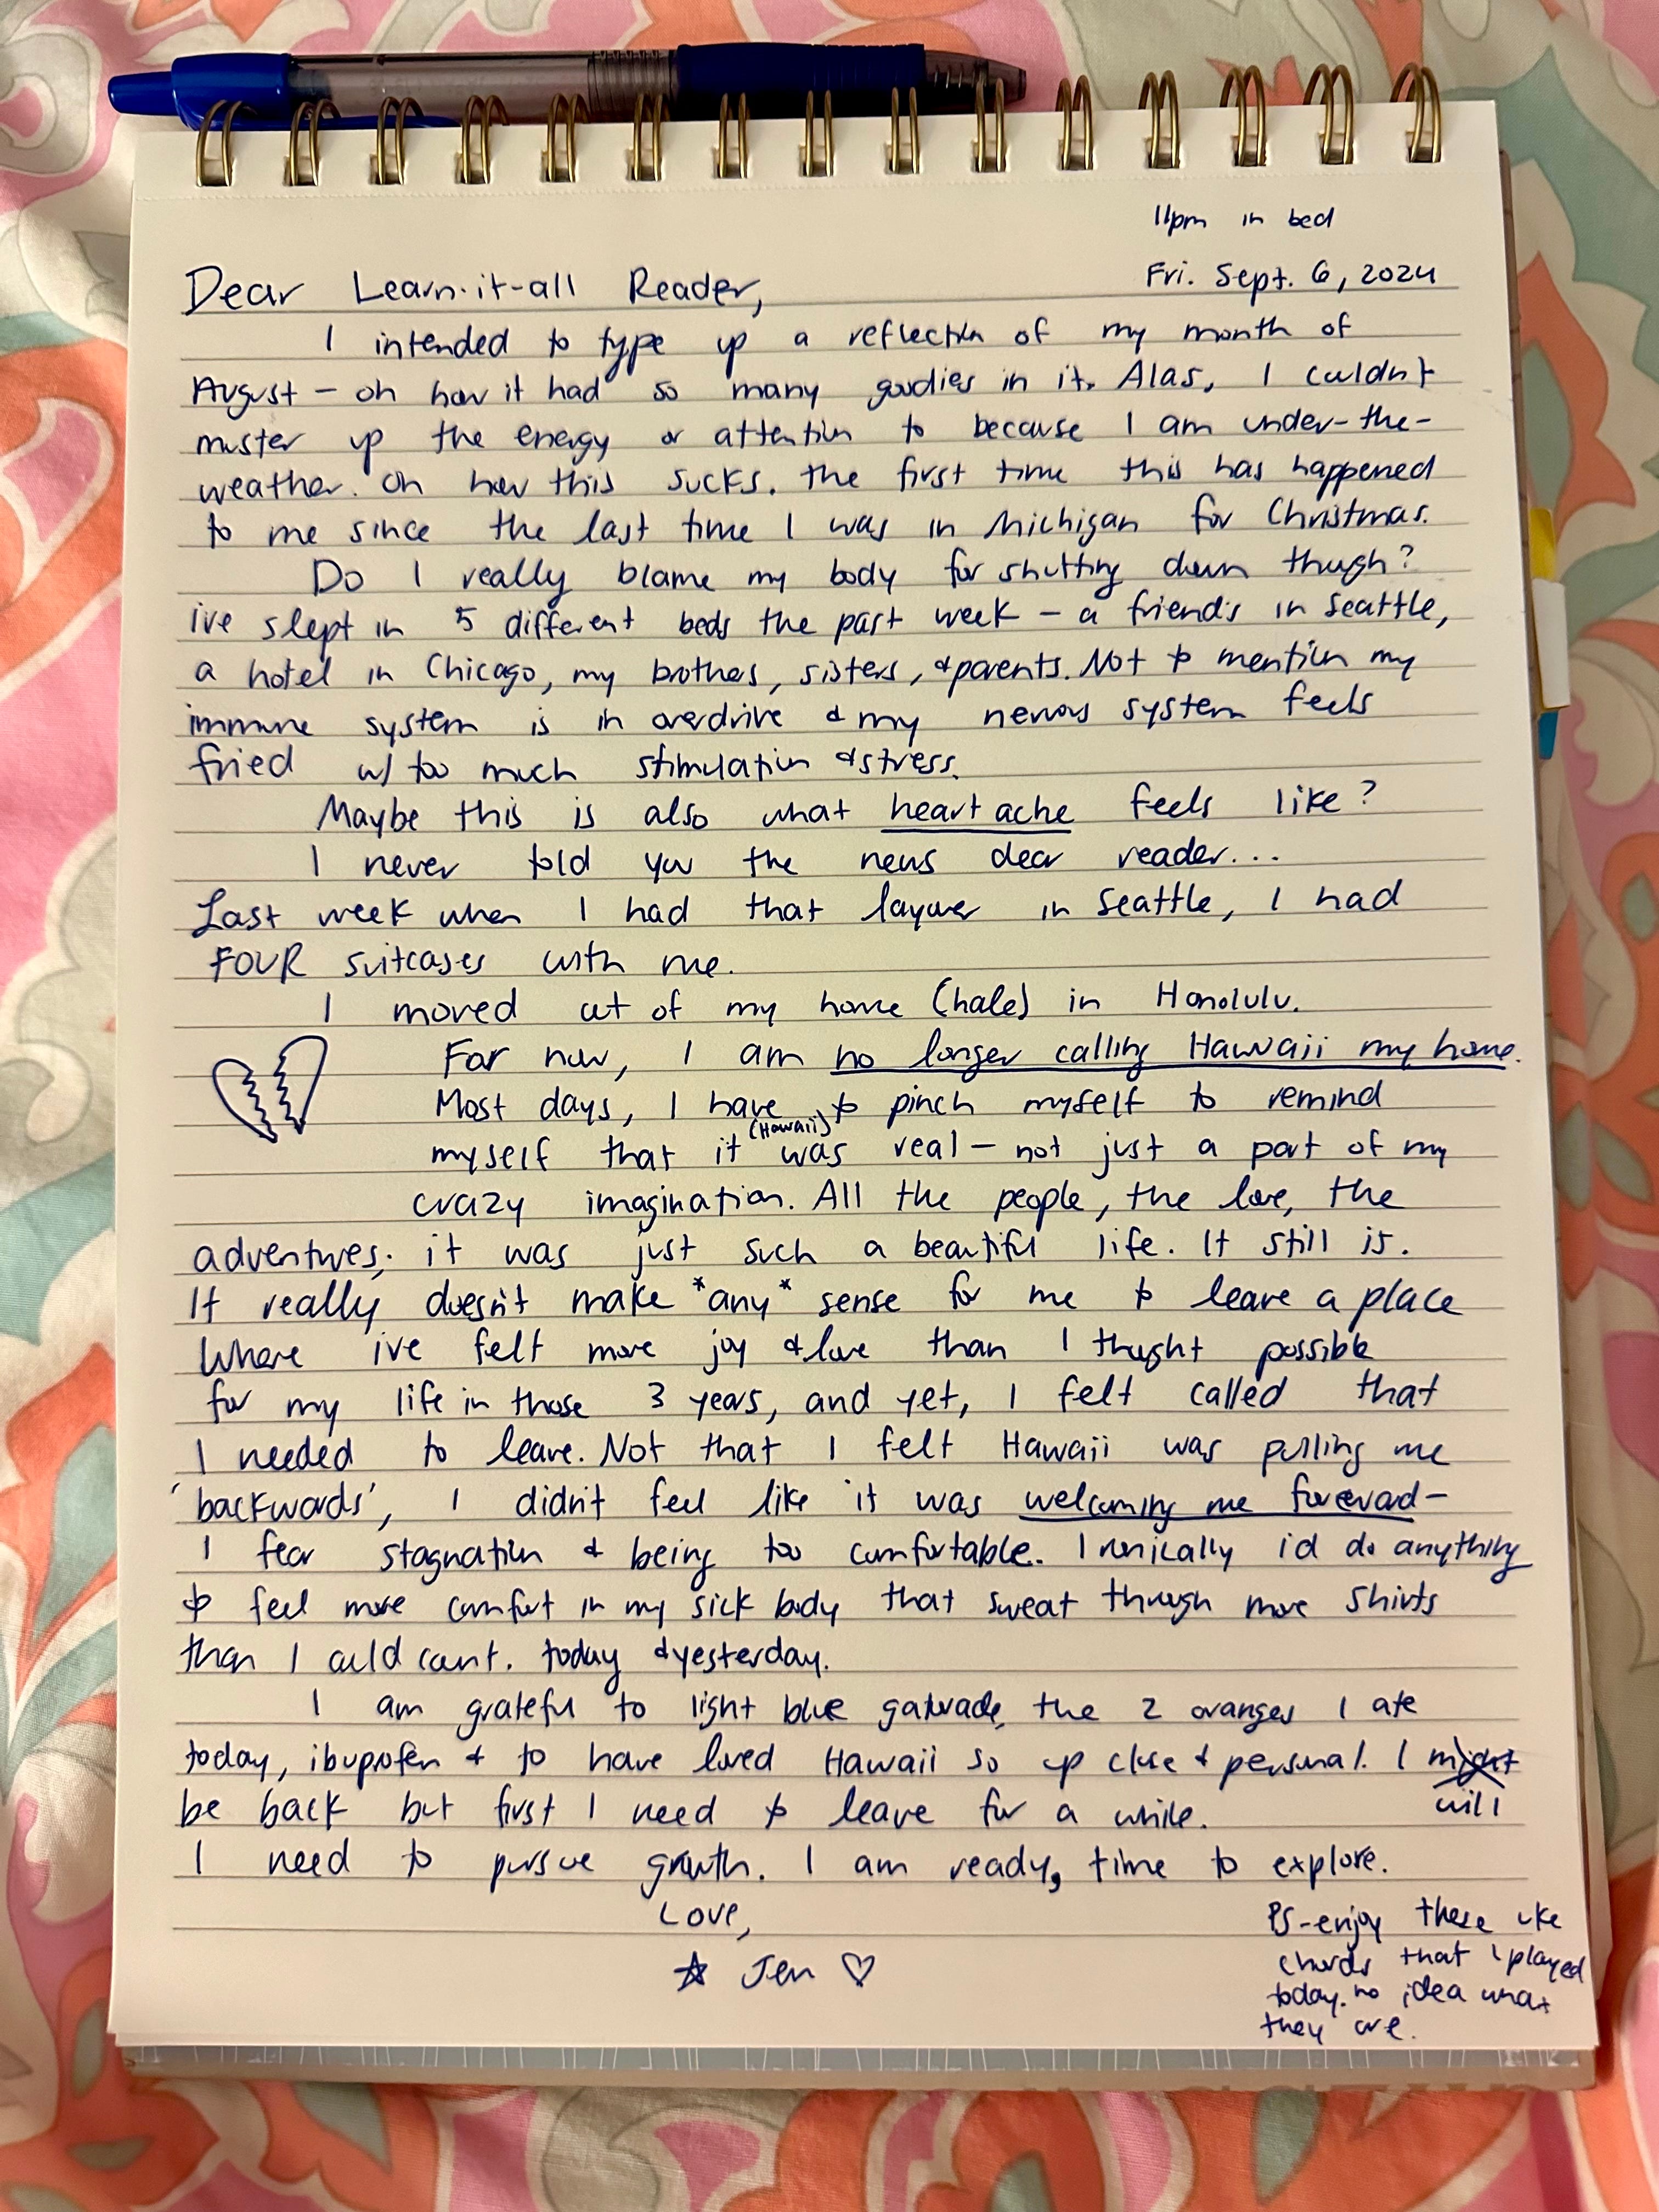 11pm in bed
Fri. Sept. 6, 2024
Dear Learn-it-all Reader,
I intended to type up a reflection of my month of
August - oh how it had so many goodies in it. Alas, I couldn't
muster up the energy or attention to because I am under-the-
weather. Oh how this sucks. The first time this has happened
to me since the last time I was in Michigan for Christmas.
Do I really blame my body for shutting down though?
ive slept in 5 different beds the past week - a friend's in Seattle,
a hotel in Chicago, my brothers, sisters, & parents. Not to mention my
immune system is in overdrive & my nervous system feels
fried w/ too much stimulation & stress.
Maybe this is also what heart ache feels like?
I never told you the news dear reader...
Last week when I had that layover in Seattle, I had
FOUR suitcases with me.
I moved out of my home (hale) in Honolulu.
For now, I am no longer calling Hawaii my home.
Most days, I have to pinch myself to remind
myself that it (Hawaii) was real - not just a part of my
crazy imagination. All the people, the love, the
adventures; it was just such a beautiful life. It still is.
It really doesn't make *any* sense for me to leave a place
Where ive felt more joy & love than I thought possible
for my life in those 3 years, and yet, I felt called that
I needed to leave. Not that I felt Hawaii was pulling me
'backwards', I didn't feel like it was welcoming me foreward-
I fear stagnation & being too comfortable. Ironically i'd do anything
to feel more comfort in my sick body that sweat through more shirts
than I could count. today & yesterday.
I am grateful to light blue gatorade, the 2 oranges I ate
today, ibuprofen & to have loved Hawaii so up close & personal. I might
will
be back but first I need to leave for a while.
I need to pursue growth. I am ready, time to explore.
Love,
☆ Jen ♡
PS-enjoy these uke
chords that I played
today. no idea what
they are.